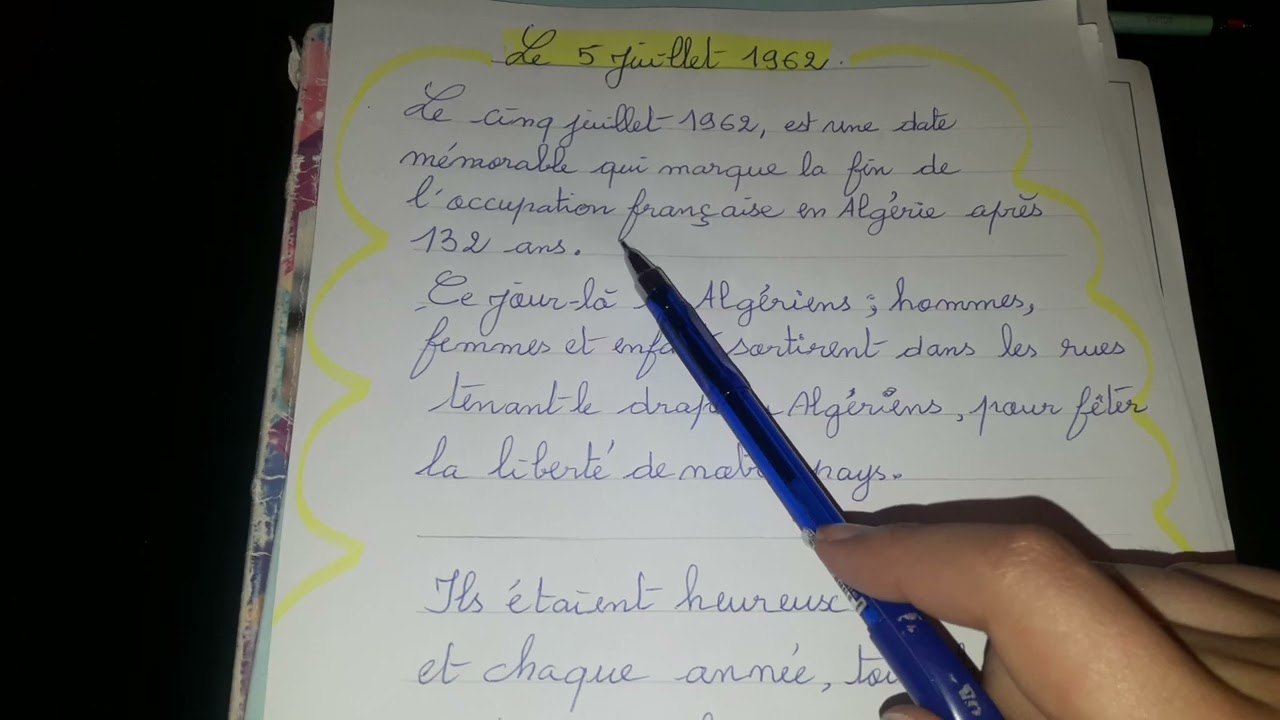 Le 5 juillet 1962.
Le cinq juillet 1962, est une date
mémorable qui marque la fin de
l'occupation française en Algérie après
132 ans.
Ce jour-là Algériens ; hommes,
femmes et sortirent dans les rues
tenant le Algériens, pour fêter
la liberté de pays.
Ils étaient heureux
et chaque année,